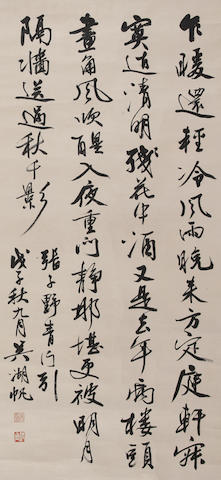 乍暖還輕冷風雨晚来方定庭軒寂
寞近清明殘花中酒又是去年病樓頭
畫角風吹醒入夜重門靜那堪更被明月
隔墻送過秋千影
張子野青门引
戊子秋九月吴湖帆